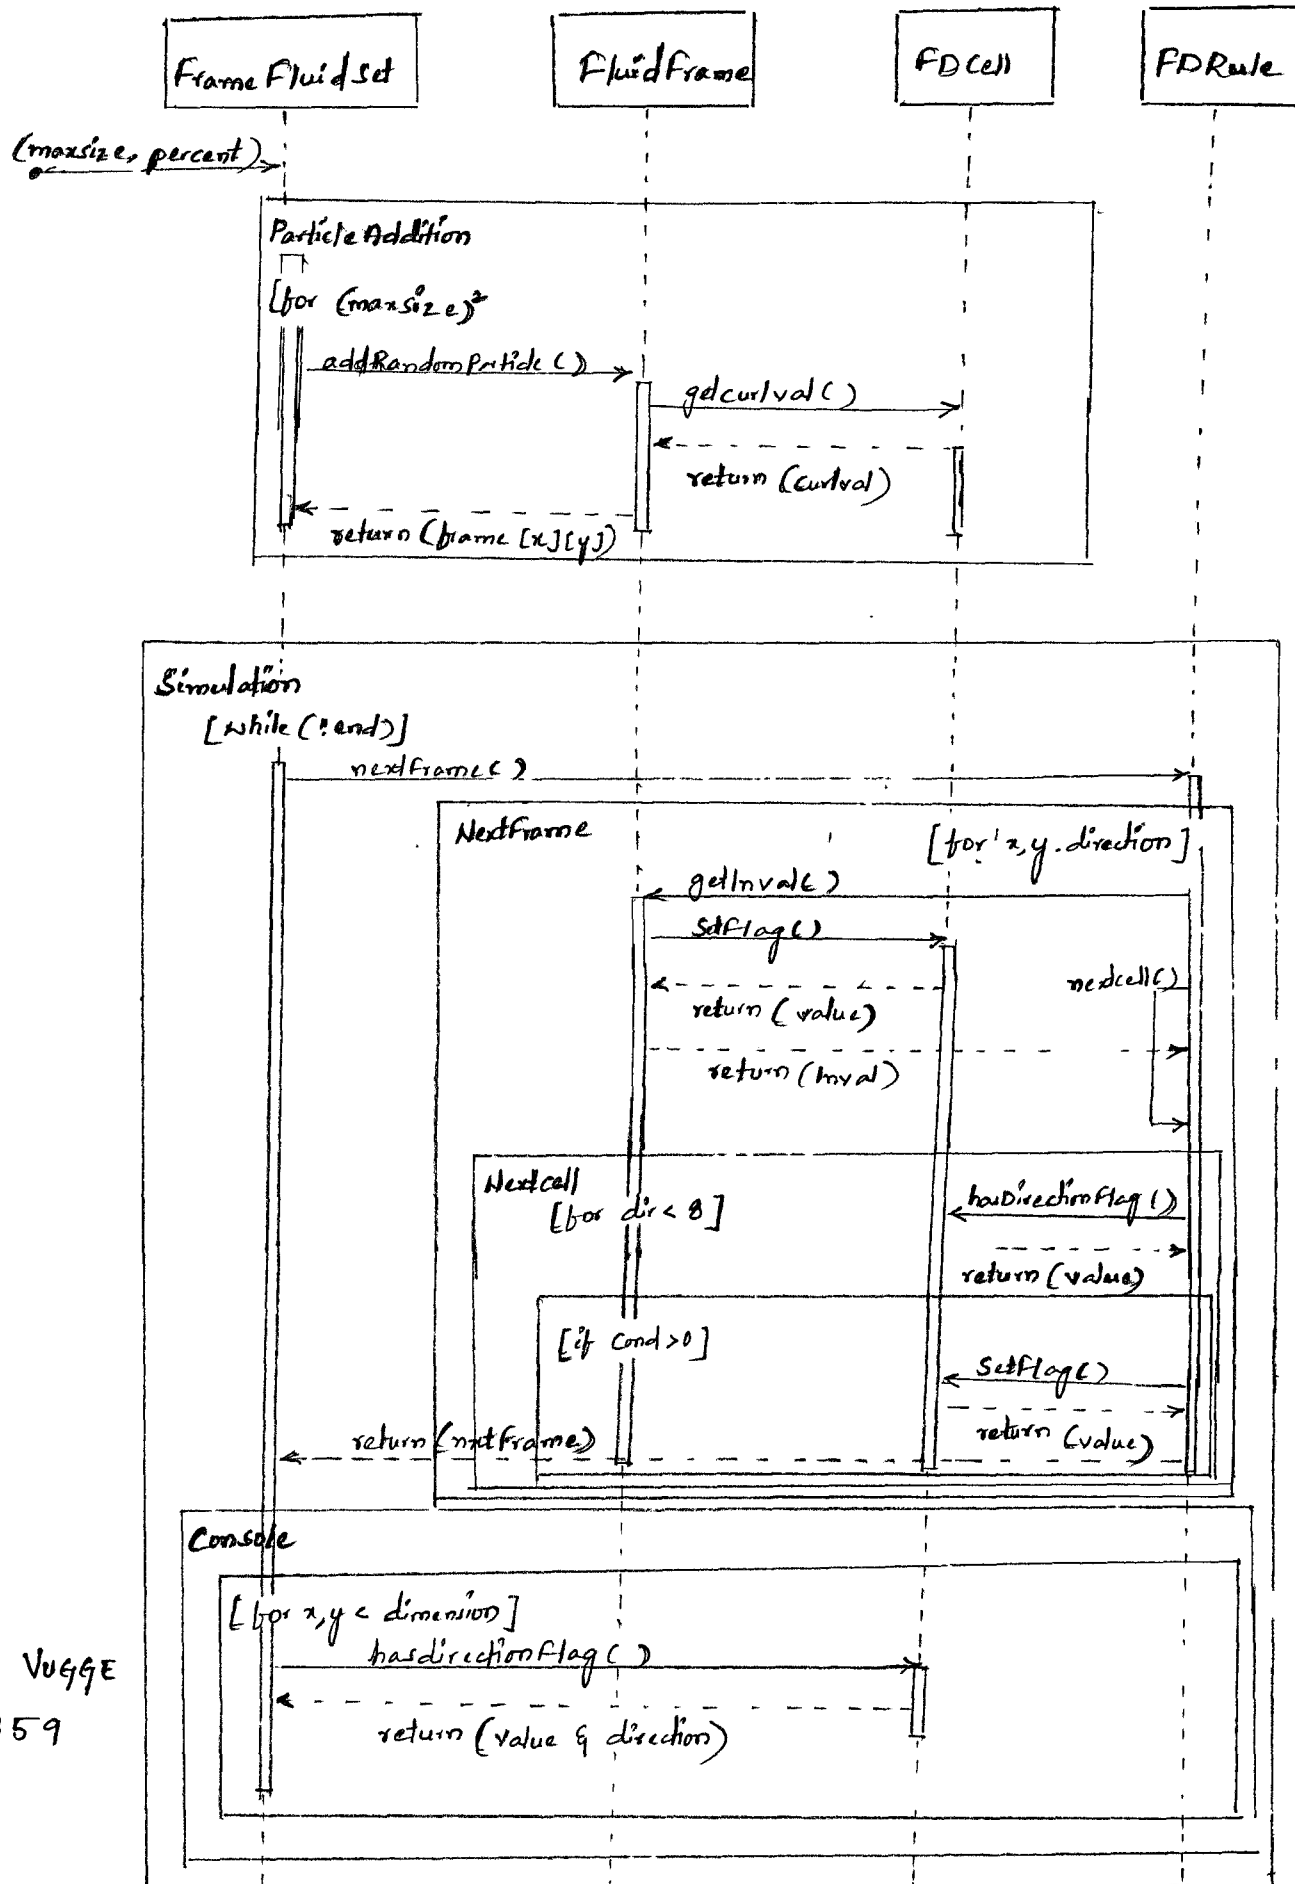 FrameFluidSet
FluidFrame
FDCell
FDRule
(maxsize, percent)
Particle Addition
[for (maxsize)²
addRandomParticle()
getcurlval()
return (curlval)
return (frame [x][y])
Simulation
[while (!end)]
nextframe()
NextFrame
[for x,y.direction]
getInval()
SetFlag()
nextcell()
return (value)
return (Inval)
Nextcell
[for dir < 8]
hasDirectionFlag()
return (value)
[if Cond>0]
SetFlag()
return (value)
return (nxtFrame)
Console
[for x,y < dimension]
hasdirectionFlag()
return (value & direction)
VUGGE
59